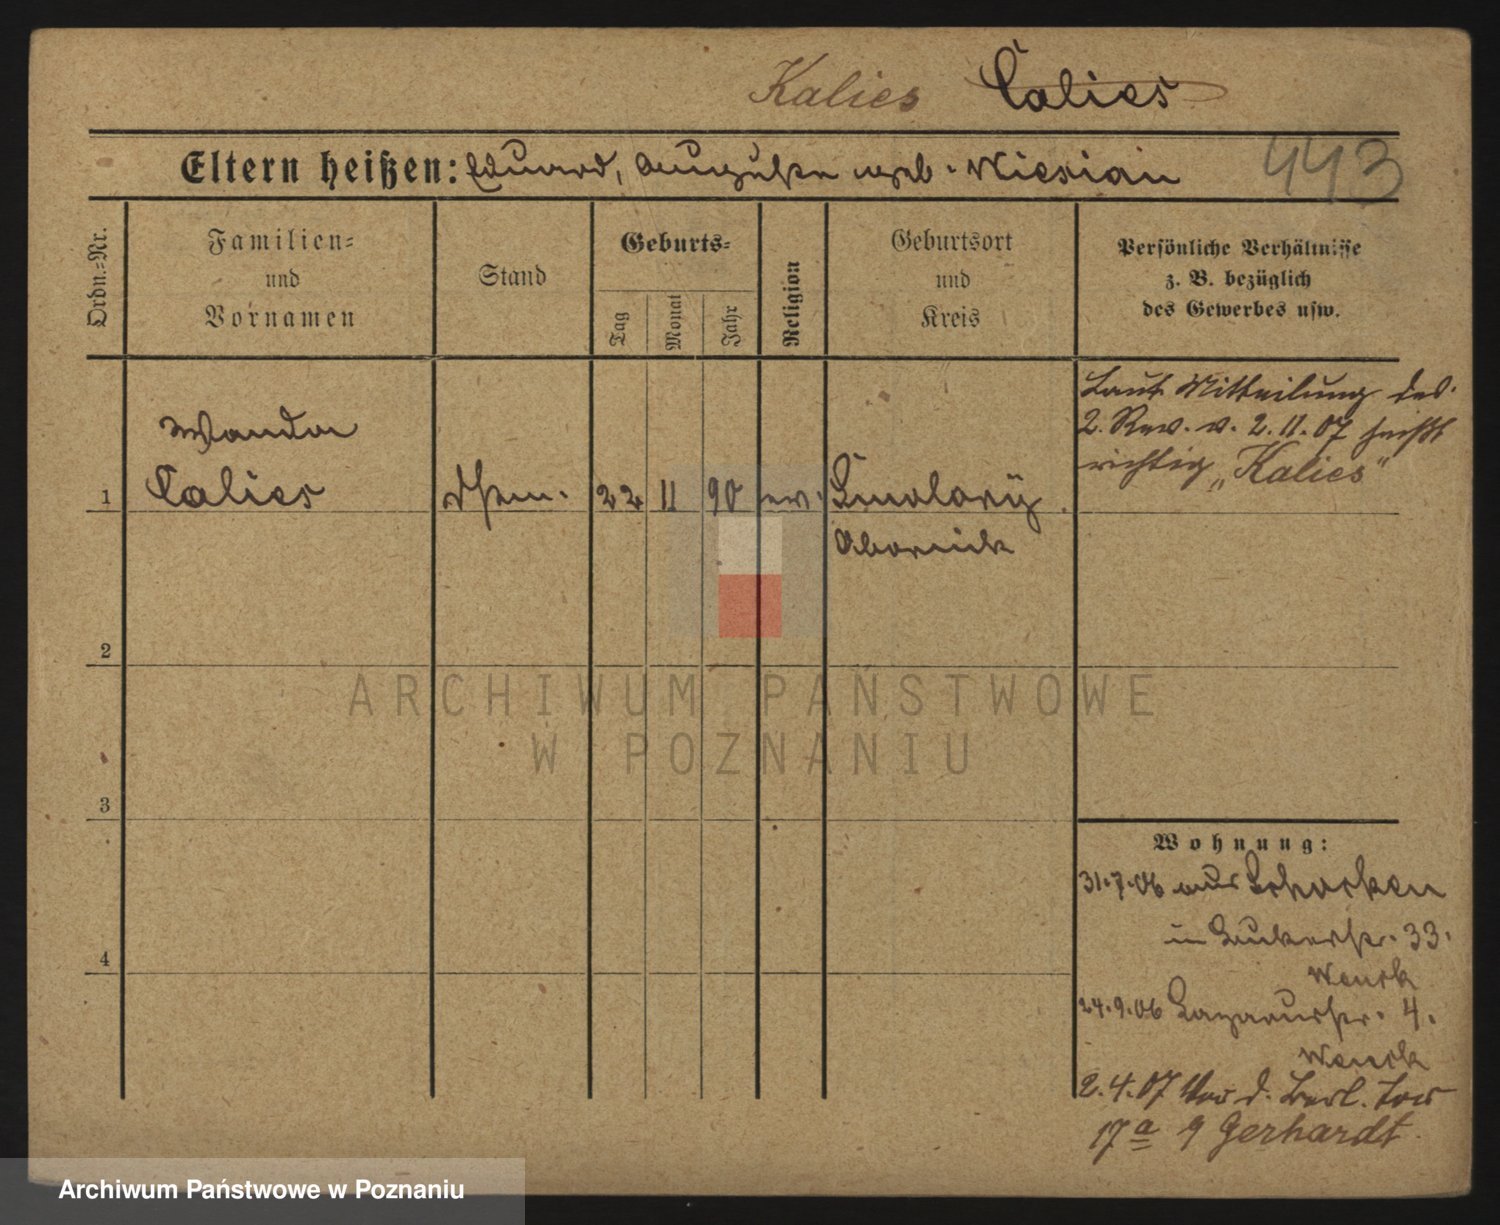 Kalies Calies
Eltern heißen: Eduard, Auguste geb. Kiesian
443
Ordn.-Nr.
Familien-
und
Vornamen
Stand
Geburts-
Tag
Monat
Jahr
Religion
Geburtsort
und
Kreis
Persönliche Verhältnisse
z. B. bezüglich
des Gewerbes usw.
Laut Mitteilung des
2. Rev. v. 2.11.07 heißt
richtig „Kalies"
Wanda
1 Calies 22 11 90 ev. Smolary
Obornik
2
3
4
ARCHIWUM PAŃSTWOWE
W POZNANIU
Wohnung:
31.7.06 aus Schocken
in Bukerstr. 33.
Wenck
24.9.06 Lazarusstr. 4.
Wenck
2.4.07 Vor d. Berl. Tor
17a Gerhardt
Archiwum Państwowe w Poznaniu